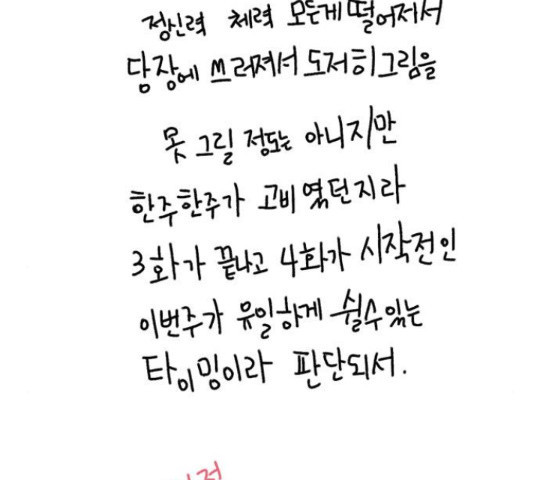 정신력 체력 모든게 떨어져서
당장에 쓰러져서 도저히 그림을
못 그릴 정도는 아니지만
한주한주가 고비였던지라
3화가 끝나고 4화가 시작전인
이번주가 유일하게 쉴수있는
타이밍이라 판단되서.